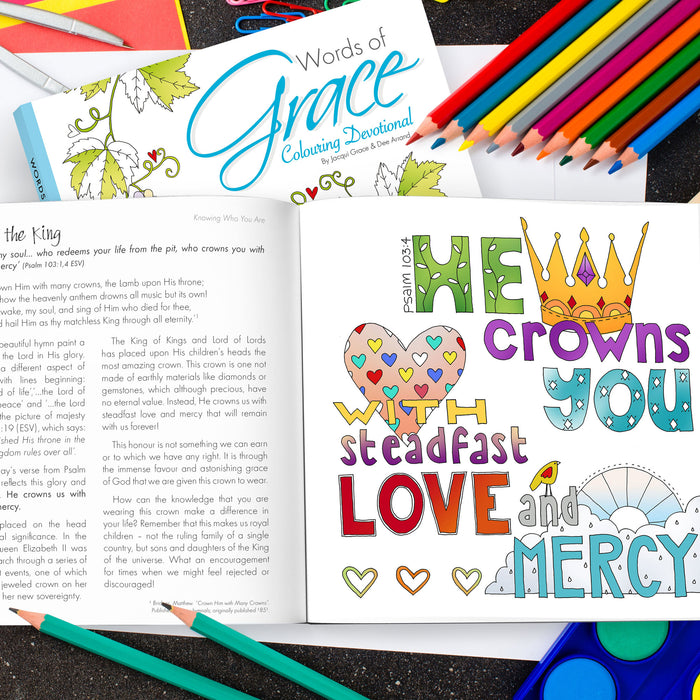 Words of
Grace
Colouring Devotional
By Jacqui Grace & Dee Anand
WORDS
Knowing Who You Are
the King
my soul... who redeems your life from the pit, who crowns you with
mercy' (Psalm 103:1,4 ESV)
own Him with many crowns, the Lamb upon His throne;
how the heavenly anthem drowns all music but its own!
wake, my soul, and sing of Him who died for thee,
d hail Him as thy matchless King through all eternity.'¹
beautiful hymn paint a
the Lord in His glory.
a different aspect of
with lines beginning:
d of life','...the Lord of
peace' and '...the Lord
the picture of majesty
:19 (ESV), which says:
shed His throne in the
gdom rules over all'.
ay's verse from Psalm
reflects this glory and
. He crowns us with
mercy.
placed on the head
al significance. In the
ueen Elizabeth II was
arch through a series of
t events, one of which
jeweled crown on her
her new sovereignty.
The King of Kings and Lord of Lords
has placed upon His children's heads the
most amazing crown. This crown is not
made of earthly materials like diamonds or
gemstones, which although precious, have
no eternal value. Instead, He crowns us with
steadfast love and mercy that will remain
with us forever!
This honour is not something we can earn
or to which we have any right. It is through
the immense favour and astonishing grace
of God that we are given this crown to wear.
How can the knowledge that you are
wearing this crown make a difference in
your life? Remember that this makes us royal
children - not the ruling family of a single
country, but sons and daughters of the King
of the universe. What an encouragement
for times when we might feel rejected or
discouraged!
Matthew. "Crown Him with Many Crowns".
originally published 185
Psalm 103:4
HE
crowns
YOU
WITH
steadfast
LOVE and
MERCY